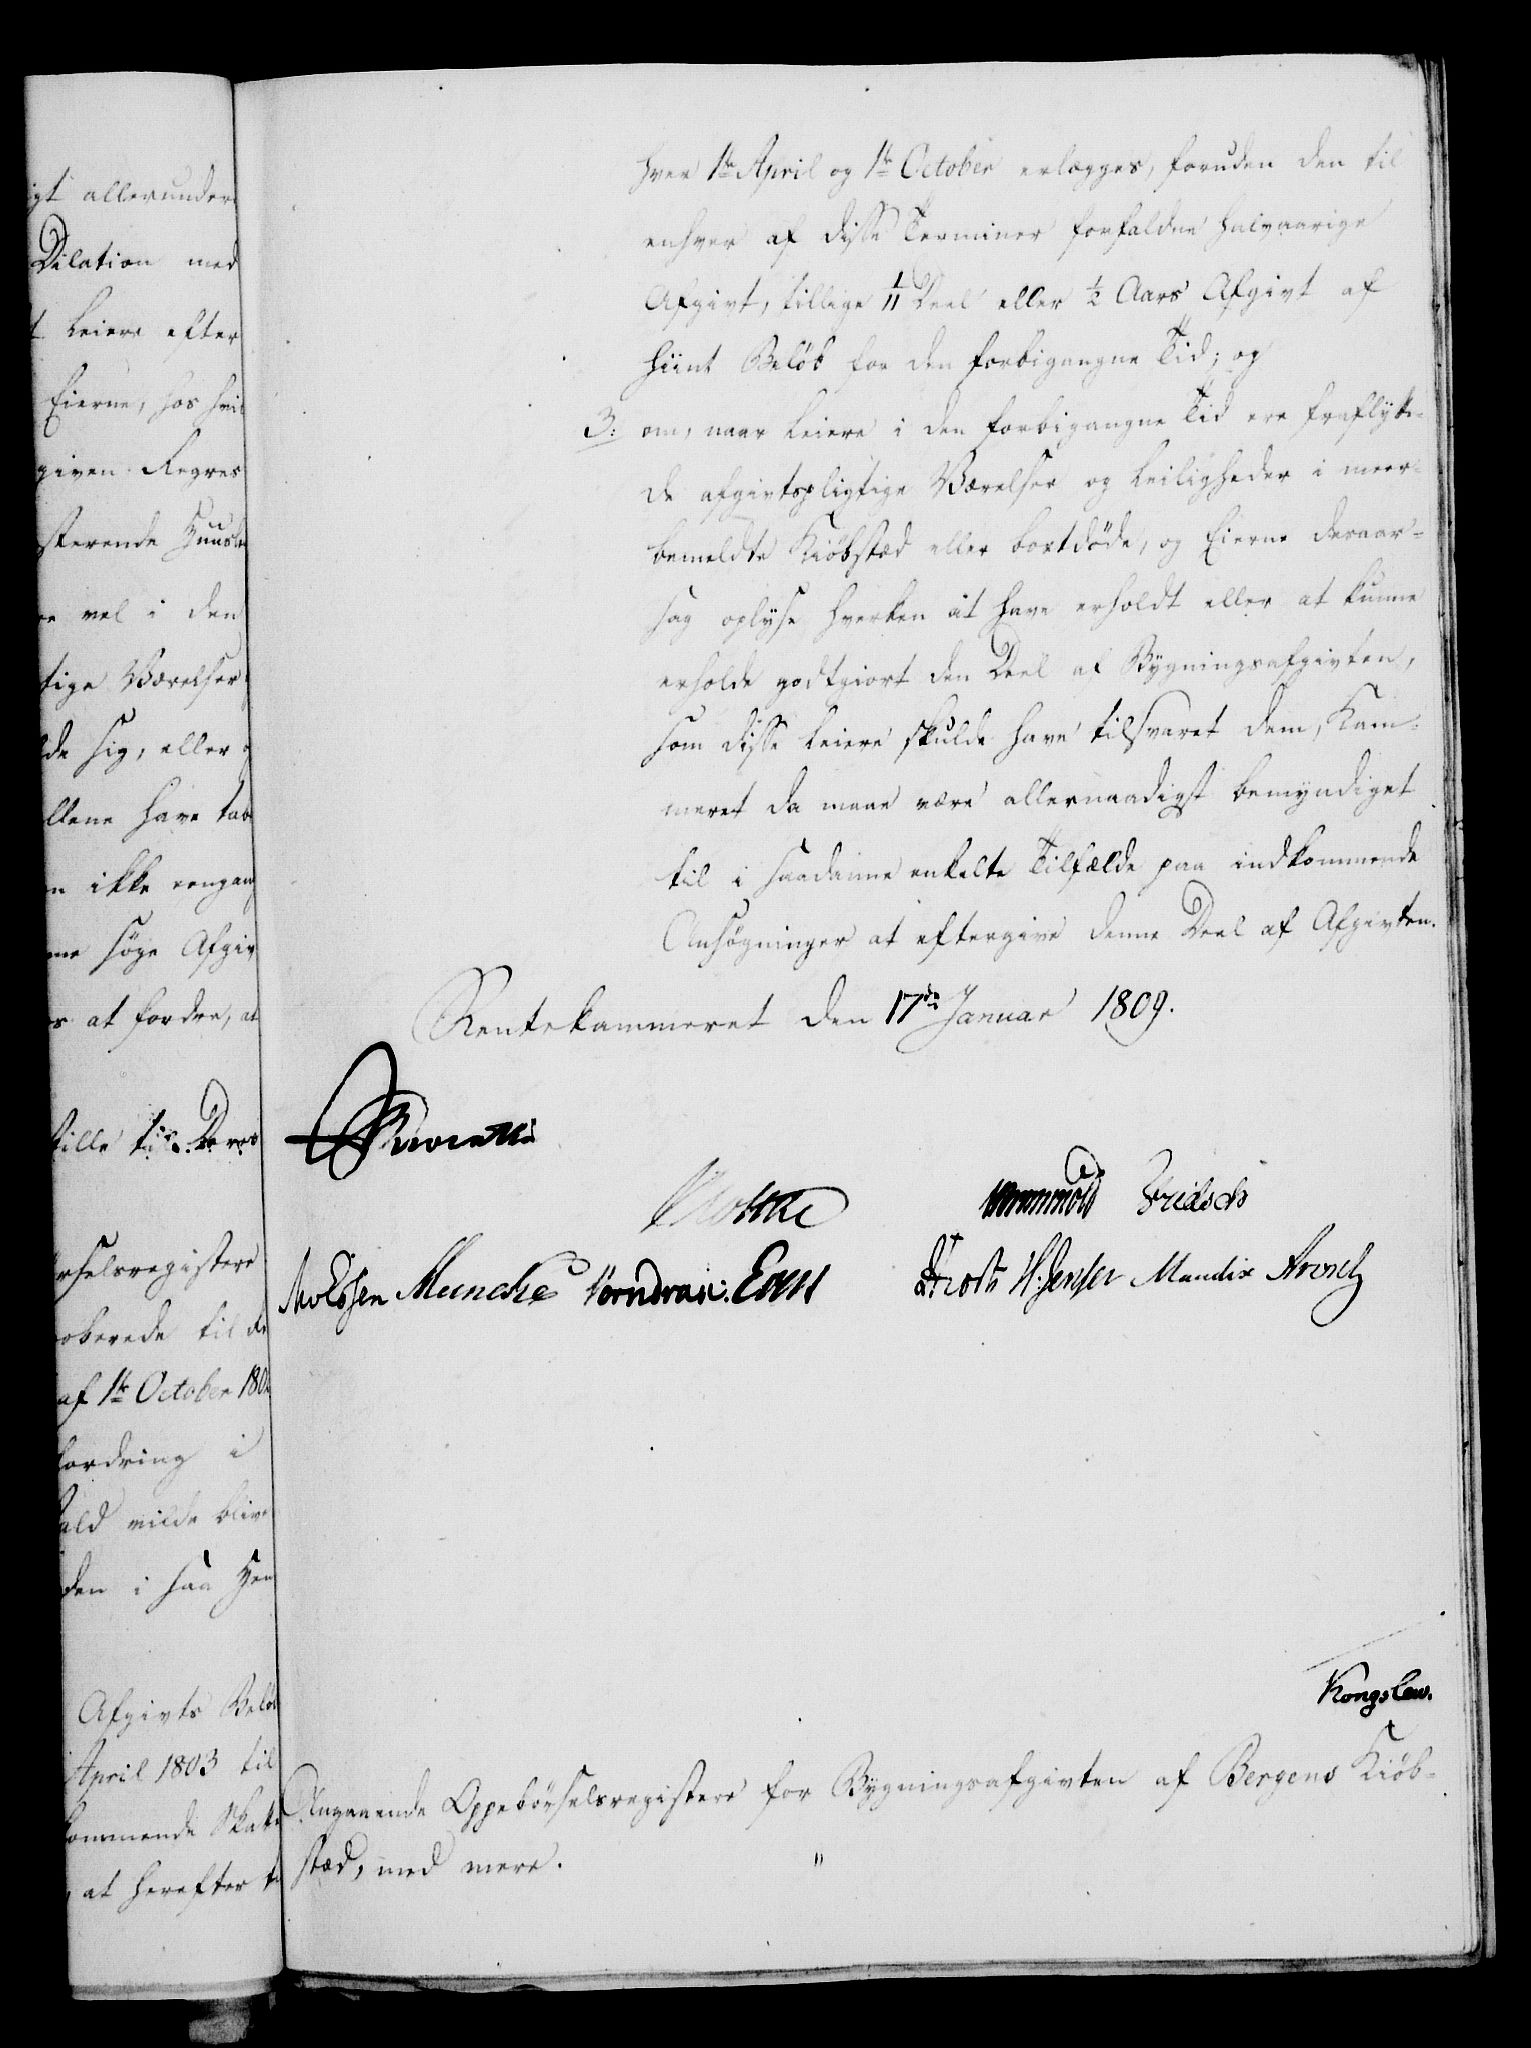 igt allerunder
Dilation med
t Leiere efter
Eierne, hos hvi
given Regres
sterende Huusl
re vel i den
tige Værelser
lde sig, eller
llene have tab
n ikke eengang
me søge Afgiv
s at fordre, at
stille til Deres
rselsregistere
oberede til de
af 1te October 180
fordring i
fald vilde blive
den i saa Hen
Afgivts Beløb
April 1803 til
kommende Skatte
, at herefter
hver 1te April og 1te October erlægges, foruden den til
enhver af disse Terminer forfaldne halvaarige
Afgivt, tillige 1/11 Deel eller ½ Aars Afgivt af
hiint Beløb for den forbigangne Tid; og
3: om, naar Leiere i den forbigangne Tid ere fraflytte-
de afgivtspligtige Værelser og Leiligheder i meer-
bemeldte Kiøbstæd eller bortdøde, og Eierne deraar-
sag oplyse hverken at have erholdt eller at kunne
erholde godtgiort den Deel af Bygningsafgivten,
som disse Leiere skulde have tilsvaret dem, Kam-
meret da maae være allernaadigst bemyndiget
til i saadanne enkelte Tilfælde paa indkommende
Ansøgninger at eftergive denne Deel af Afgivten.
Rentekammeret den 17de Januar 1809.
Reventlow
Moltke Wormskiold Fridsch
Munche Vorndran. H. Jensen Mandix Arentz
Kongslew.
Angaaende Oppebørselsregistere for Bygningsafgivten af Bergens Kiøb-
stæd, med mere. "